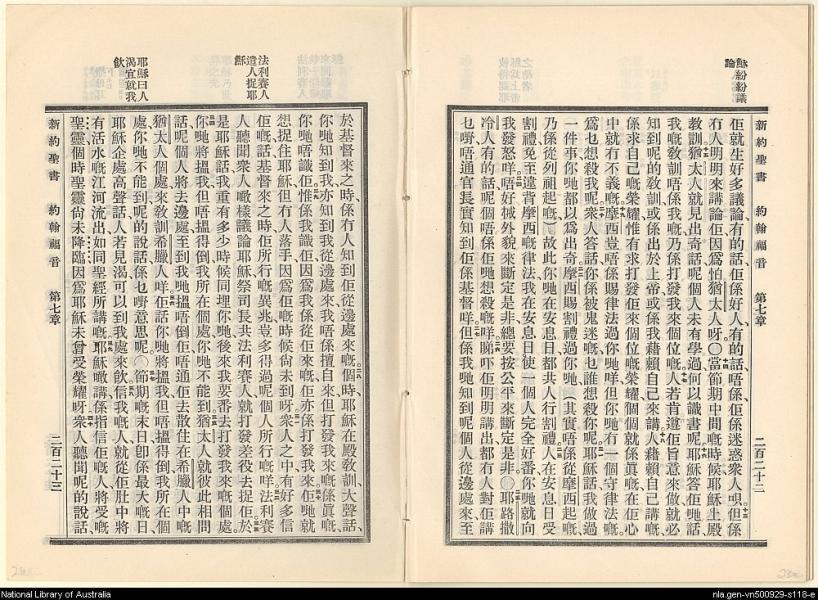 穌紛紛議
論
新約聖書 約翰福音 第七章 二百二十二
佢就生好多議論有的話佢係好人有的話唔係佢係迷惑衆人唄但係
冇人明明來講論佢因爲怕猶太人呀〇當節期中間嘅時候耶穌上殿
教訓猶太人就見出奇話呢個人未有學過何以識書呢耶穌答佢哋話
我嘅教訓唔係我嘅乃係打發我來個位嘅人若肯遵佢旨意來做就必
知到呢的教訓或係出於上帝或係我藉賴自己來講人藉賴自己講嘅
係求自己嘅榮耀惟有求打發佢來個位嘅榮耀個個就係眞嘅在佢心
中就冇不義嘅摩西豈唔係賜律法過你哋咩但你哋冇一個守律法嘅
爲乜想殺我呢衆人答話你係被鬼迷嘅乜誰想殺你呢耶穌話我做過
一件事你哋都以爲出奇摩西賜割禮過你哋(其實唔係從摩西起嘅
乃係從列祖起嘅)故此你哋在安息日都共人行割禮人在安息日受
割禮免至違背摩西嘅律法我在安息日使一個人完全好番你哋就向
我發怒咩唔好揻外貌來斷定是非總要按公平來斷定是非〇耶路撒
冷人有的話呢個唔係佢哋想殺嘅咩睇吓佢明明講出都冇人對佢講
乜嘢唔通官長實知到佢係基督咩但係我哋知到呢個人從邊處來至
法利賽人
遣人捉耶
穌
耶穌曰人
渴宜就我
飲
於基督來之時係冇人知到佢從邊處來嘅個時耶穌在殿敎訓大聲話
你哋知到我亦知到我從邊處來我唔係擅自來但打發我來嘅係眞嘅
你哋唔識佢惟係我識佢因爲我係從佢來嘅佢亦係打發我來佢哋就
想捉住耶穌但冇人落手因爲佢嘅時候尙未到呀衆人之中有好多信
佢嘅話基督來之時佢所行嘅異兆豈多得過呢個人所行嘅咩法利賽
人聽聞衆人噉樣議論耶穌祭司長共法利賽人就打發差役去捉佢於
是耶穌話我重有多少時候同埋你哋後來我要番去打發我來嘅個處
你哋將搵我但唔搵得倒我所在個處你哋不能到猶太人就彼此相問
話呢個人將去邊處至到我哋搵唔倒佢唔通佢去散住在希臘人中嘅
猶太人個處來敎訓希臘人咩佢話你哋將搵我但唔搵得倒我所在個
處你哋不能到呢的說話係乜嘢意思呢〇節期嘅末日卽係最大嘅日
耶穌企處高聲話人若見渴可以到我處來飲信我嘅人就從佢肚中將
有活水嘅江河流出如同聖經所講嘅耶穌噉講係指信佢嘅人將受嘅
聖靈個時聖靈尙未降臨因爲耶穌未曾受榮耀呀衆人聽聞呢的說話
新約聖書 約翰福音 第七章 二百二十三
National Library of Australia
nla.gen-vn500929-s118-e